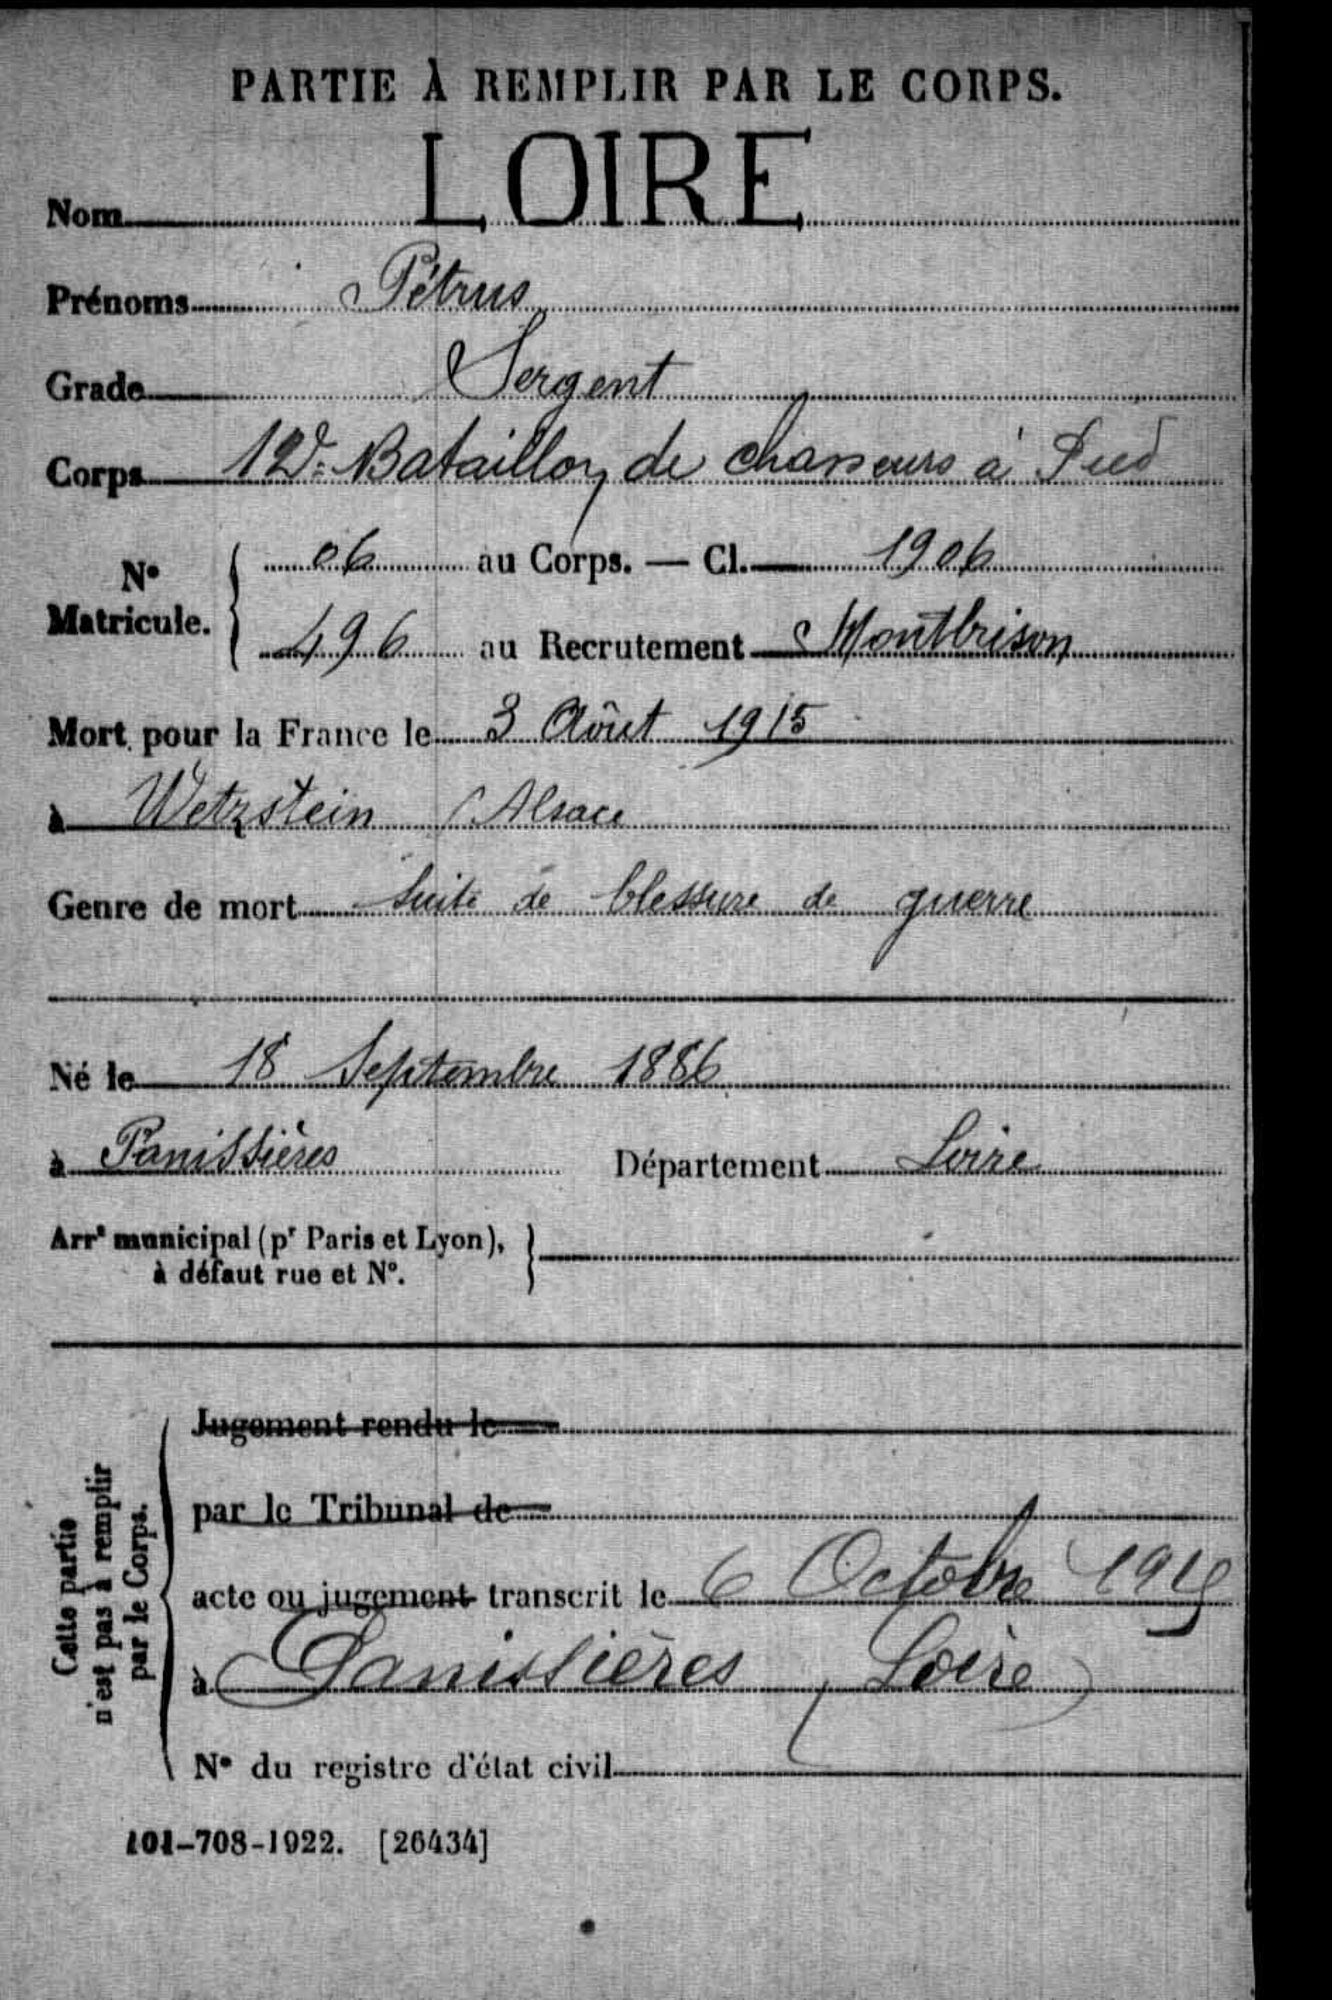 PARTIE À REMPLIR PAR LE CORPS.
Nom LOIRE
Prénoms Pétrus
Grade Sergent
Corps 12e Bataillon de chasseurs à Pied
N° Matricule. 06 au Corps. — Cl. 1906
496 au Recrutement Montbrison
Mort pour la France le 3 Aôut 1915
à Wetzstein (Alsace
Genre de mort Suite de blessure de guerre
Né le 18 Septembre 1886
à Panissières Département Loire
Arrt municipal (pr Paris et Lyon),
à défaut rue et N°.
Cette partie
n'est pas à remplir
par le Corps.
Jugement rendu le
par le Tribunal de
acte ou jugement transcrit le 6 Octobre 1915
à Panissières (Loire)
N° du registre d'état civil
101-708-1922. [26434]